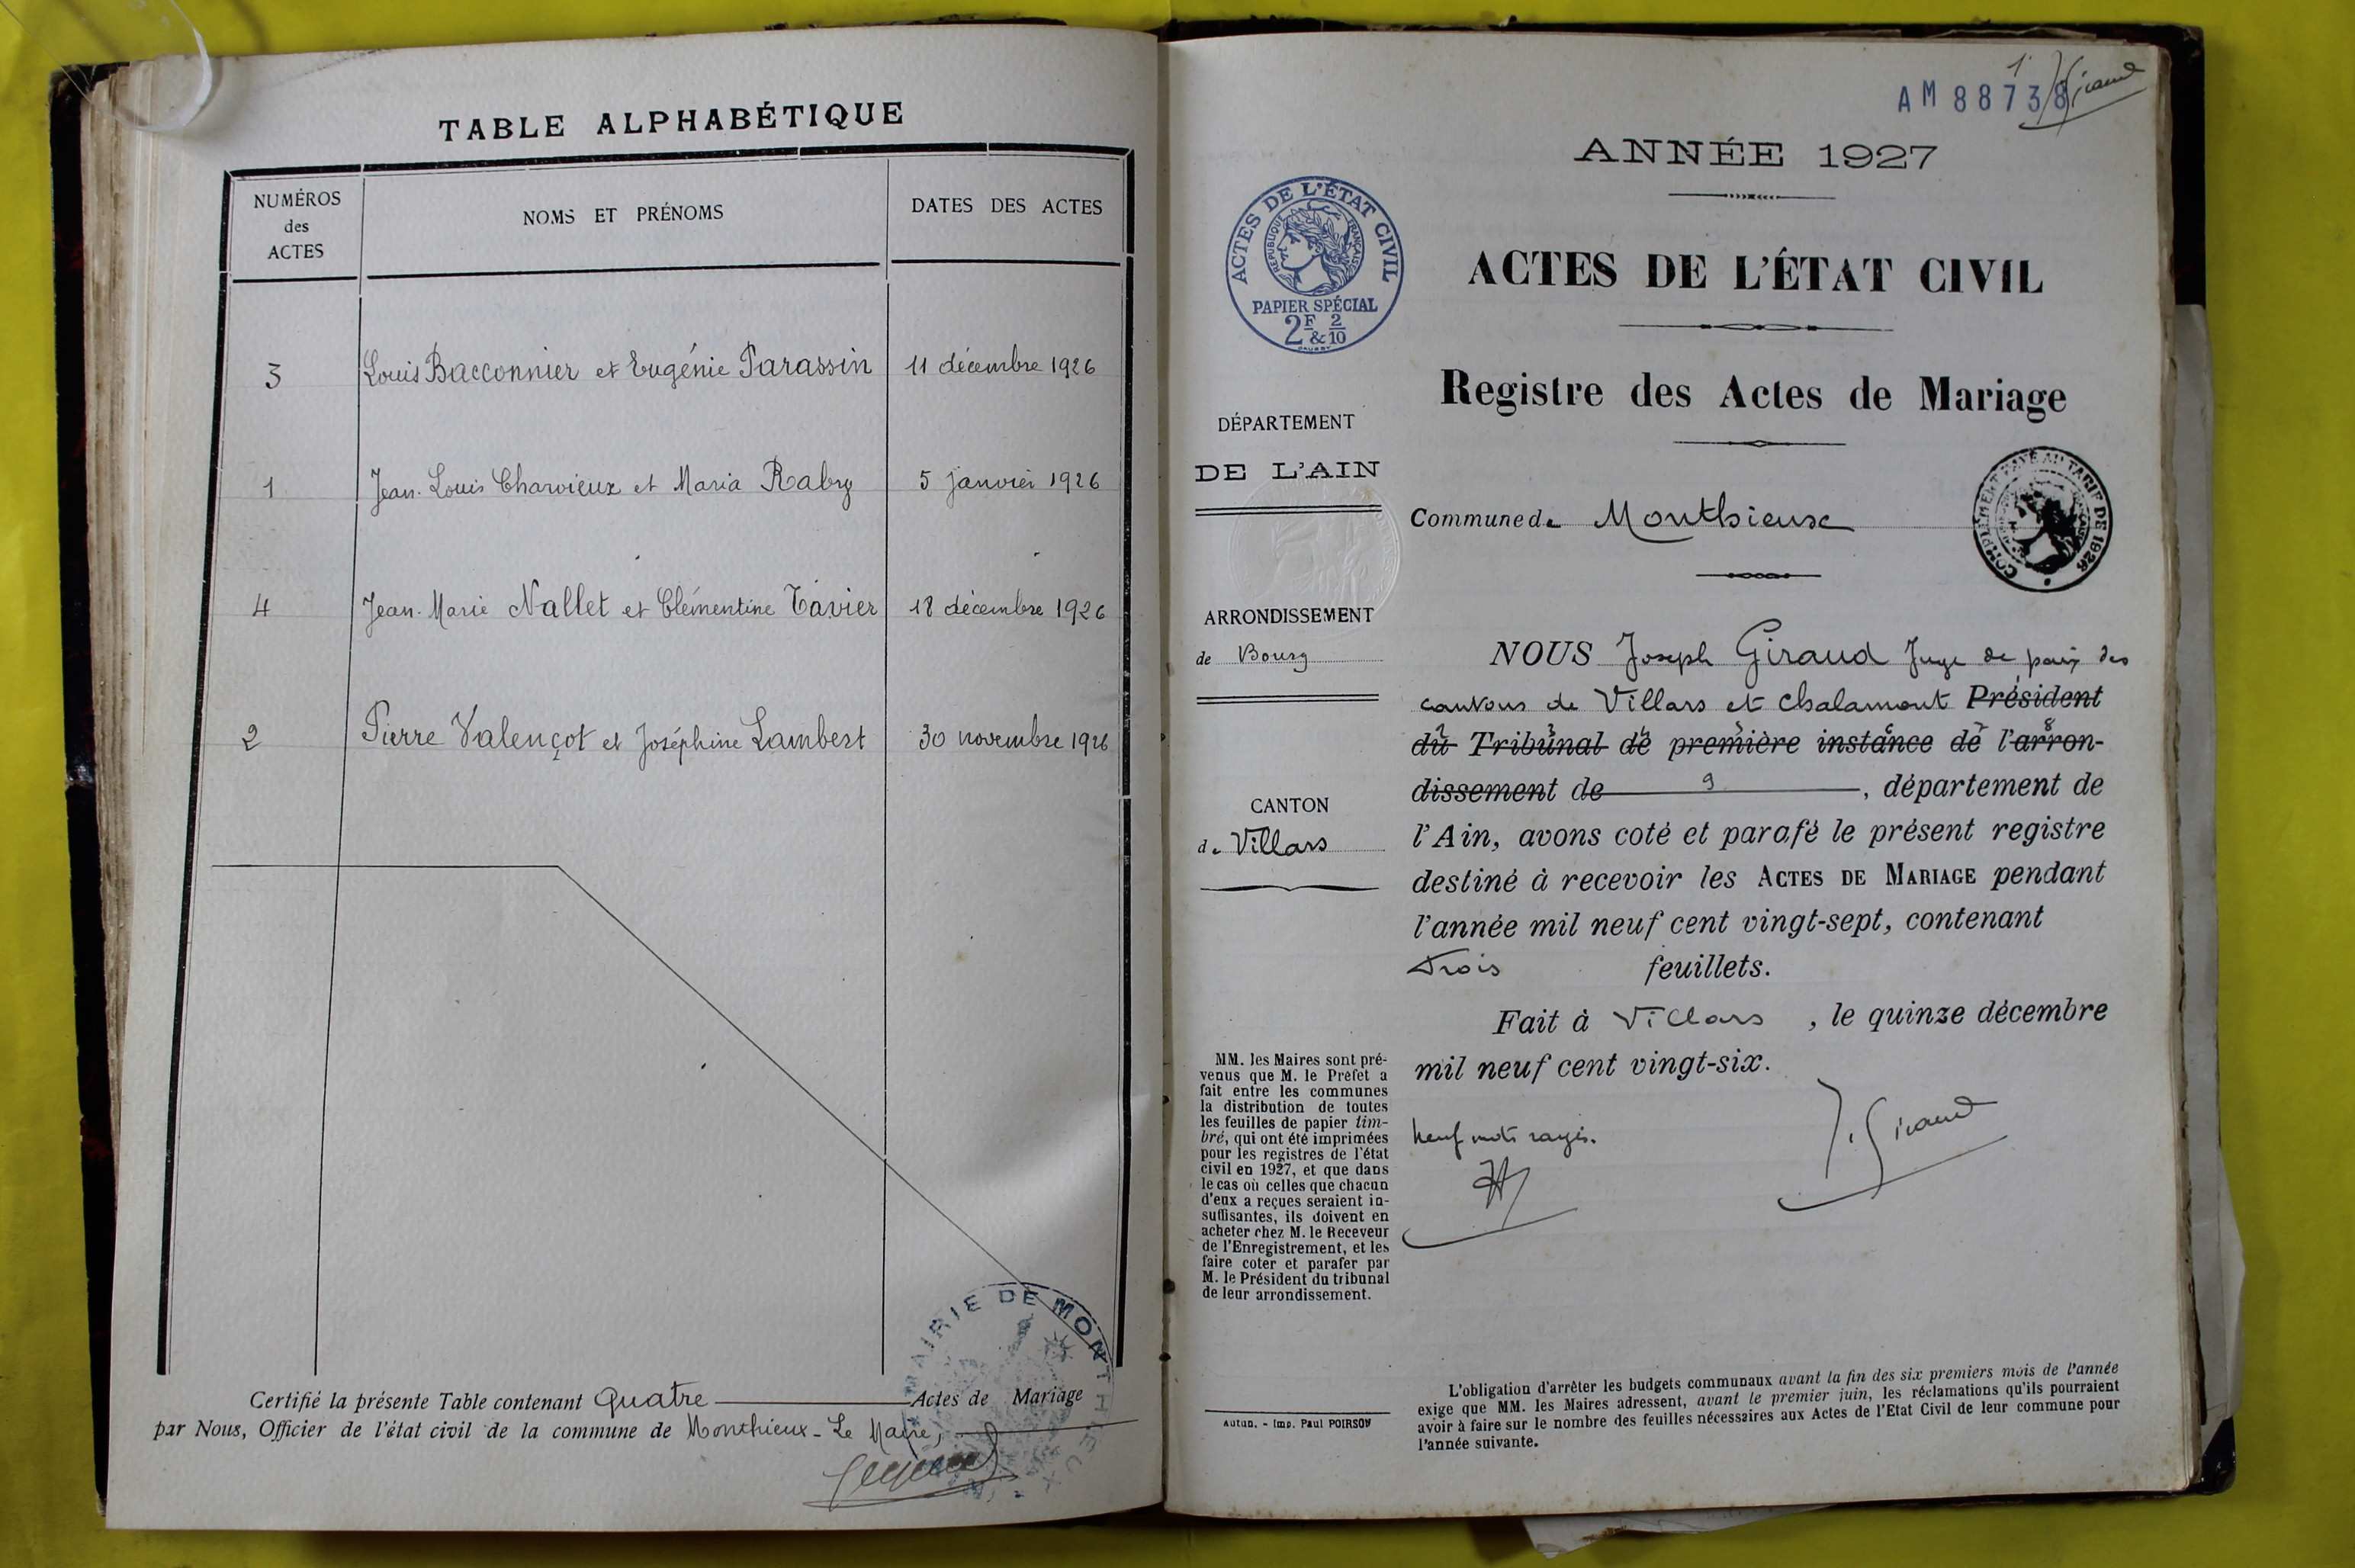 TABLE ALPHABÉTIQUE
NUMÉROS
des
ACTES
NOMS ET PRÉNOMS
DATES DES ACTES
3 Louis Bacconnier et Eugénie Parassin 11 décembre 1926
1 Jean-Louis Charvieux et Maria Rabry 5 janvier 1926
4 Jean-Marie Nallet et Clémentine Tavier 18 décembre 1926
2 Pierre Valençot et Joséphine Lambert 30 novembre 1926
Certifié la présente Table contenant Quatre Actes de Mariage
par Nous, Officier de l'état civil de la commune de Monthieux - Le Maire,
MAIRIE DE MONTHIEUX
1.
J. Giraud
AM 88738
ANNÉE 1927
ACTES DE L'ÉTAT CIVIL
RÉPUBLIQUE FRANÇAISE
PAPIER SPÉCIAL
2F & 2/10
ACTES DE L'ÉTAT CIVIL
Registre des Actes de Mariage
DÉPARTEMENT
DE L'AIN
Commune de Monthieux
COMPLÉMENT PAYÉ AU TARIF DE 1926
ARRONDISSEMENT
de Bourg
CANTON
de Villars
NOUS Joseph Giraud Juge de paix des
cantons de Villars et Chalamont Président
du Tribunal de première instance de l'arron-
dissement de 9, département de
l'Ain, avons coté et parafé le présent registre
destiné à recevoir les ACTES DE MARIAGE pendant
l'année mil neuf cent vingt-sept, contenant
Trois feuillets.
Fait à Villars, le quinze décembre
mil neuf cent vingt-six.
Neuf mots rayés.
J. Giraud
MM. les Maires sont pré-
venus que M. le Préfet a
fait entre les communes
la distribution de toutes
les feuilles de papier tim-
bré, qui ont été imprimées
pour les registres de l'état
civil en 1927, et que dans
le cas où celles que chacun
d'eux a reçues seraient in-
suffisantes, ils doivent en
acheter chez M. le Receveur
de l'Enregistrement, et les
faire coter et parafer par
M. le Président du tribunal
de leur arrondissement.
Autun. - Imp. Paul POIRSON
L'obligation d'arrêter les budgets communaux avant la fin des six premiers mois de l'année
exige que MM. les Maires adressent, avant le premier juin, les réclamations qu'ils pourraient
avoir à faire sur le nombre des feuilles nécessaires aux Actes de l'Etat Civil de leur commune pour
l'année suivante.